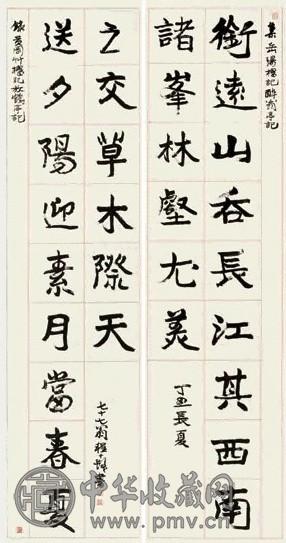 集岳陽樓記醉翁亭記
銜遠山吞長江其西南
諸峯林壑尤美
丁丑長夏
錄黃岡竹樓記放鶴亭記
送夕陽迎素月當春夏
之交草木際天
七十七翁程十髮書
中华收藏网
www.pmv.cn